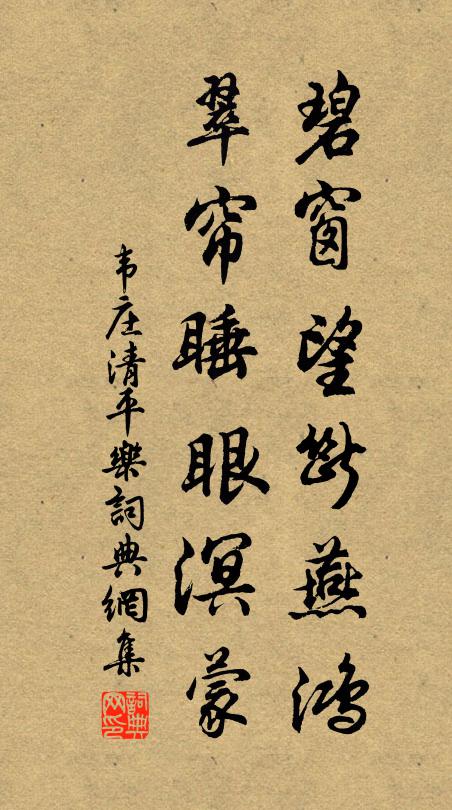 碧窗望断燕鸿
翠帘睡眼溟蒙
韦庄清平樂詞典網集
詞典网印